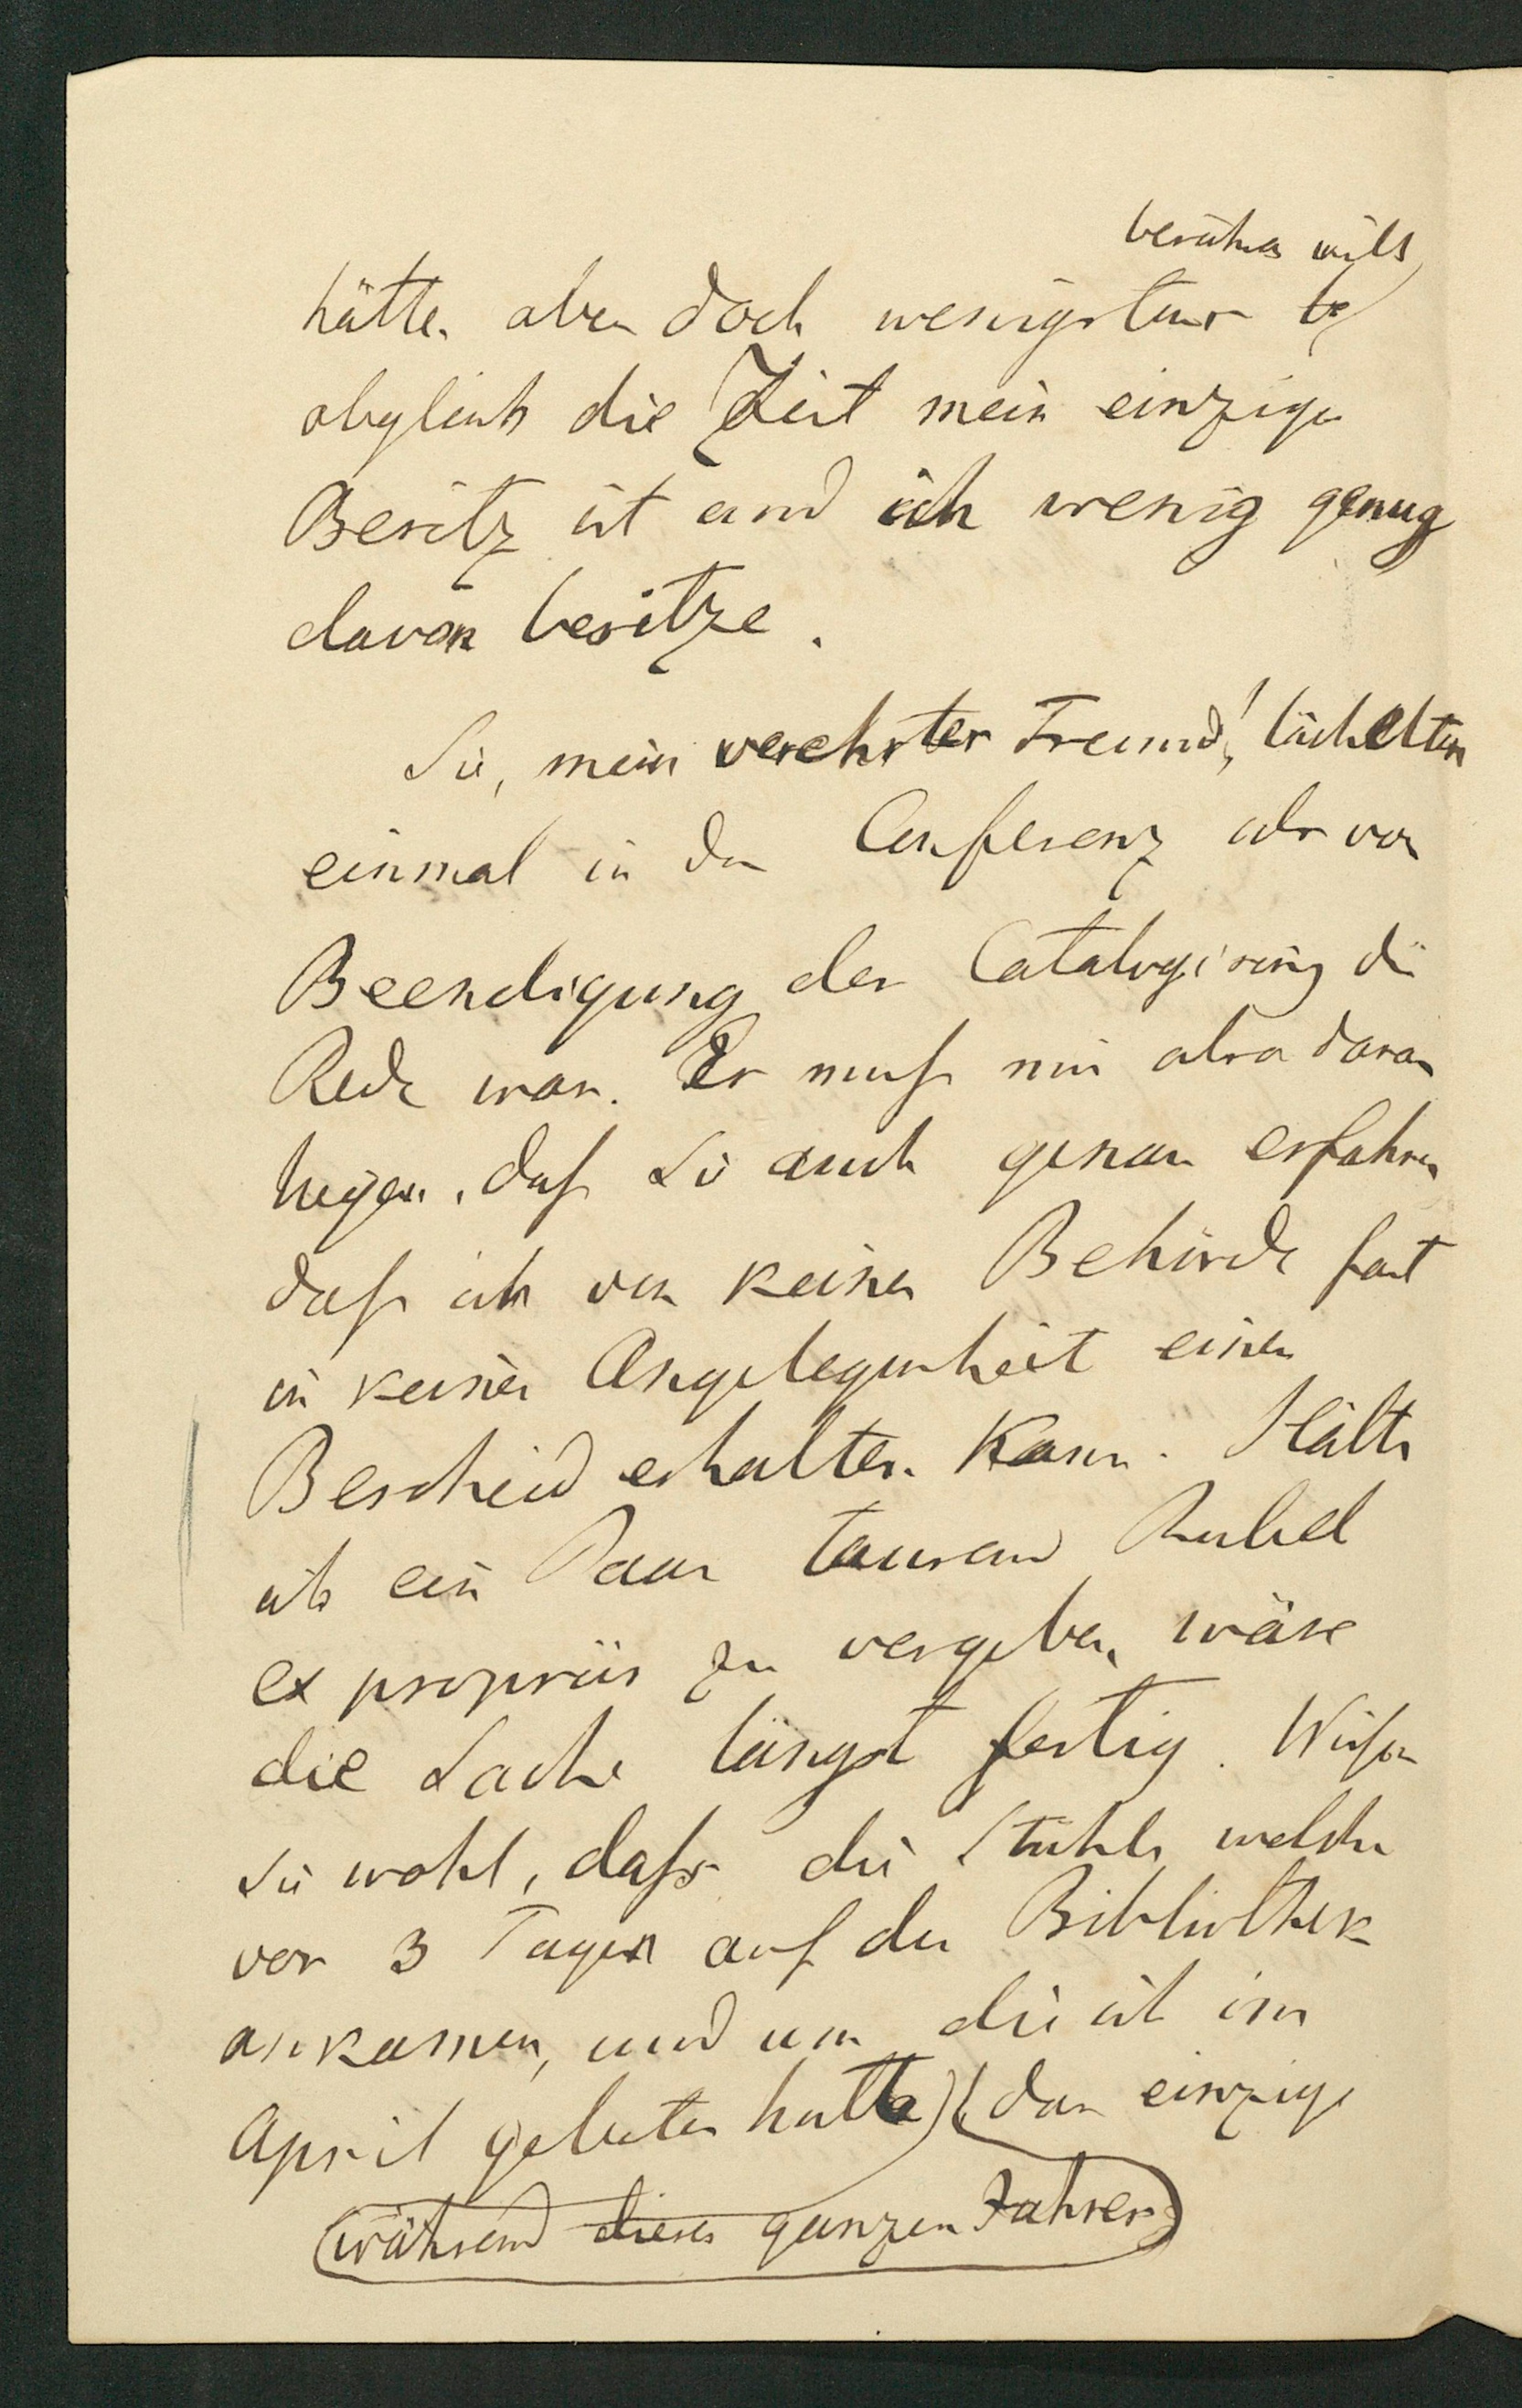 berühren will
hätten aber doch wenigstens be
obgleich die Zeit mein einziger
Besitz ist und ich wenig genug
davon besitze.
Sie, mein verehrter Freund! lächelten
einmal in der Conferenz als von
Beendigung der Catalogisirung die
Rede war. Es muß mir also daran
liegen, daß Sie auch genau erfahren
daß ich von keiner Behörde fast
in keiner Angelegenheit einen
Bescheid erhalten kann. Hätte
ich ein Paar tausend Rubel
ex propriis zu vergeben, wäre
die Sache längst fertig. Wissen
Sie wohl, daß die Stühle welche
vor 3 Tagen auf der Bibliothek
ankamen, und um die ich im
April gebeten hatte) (das einzige
während dieses ganzen Jahres)